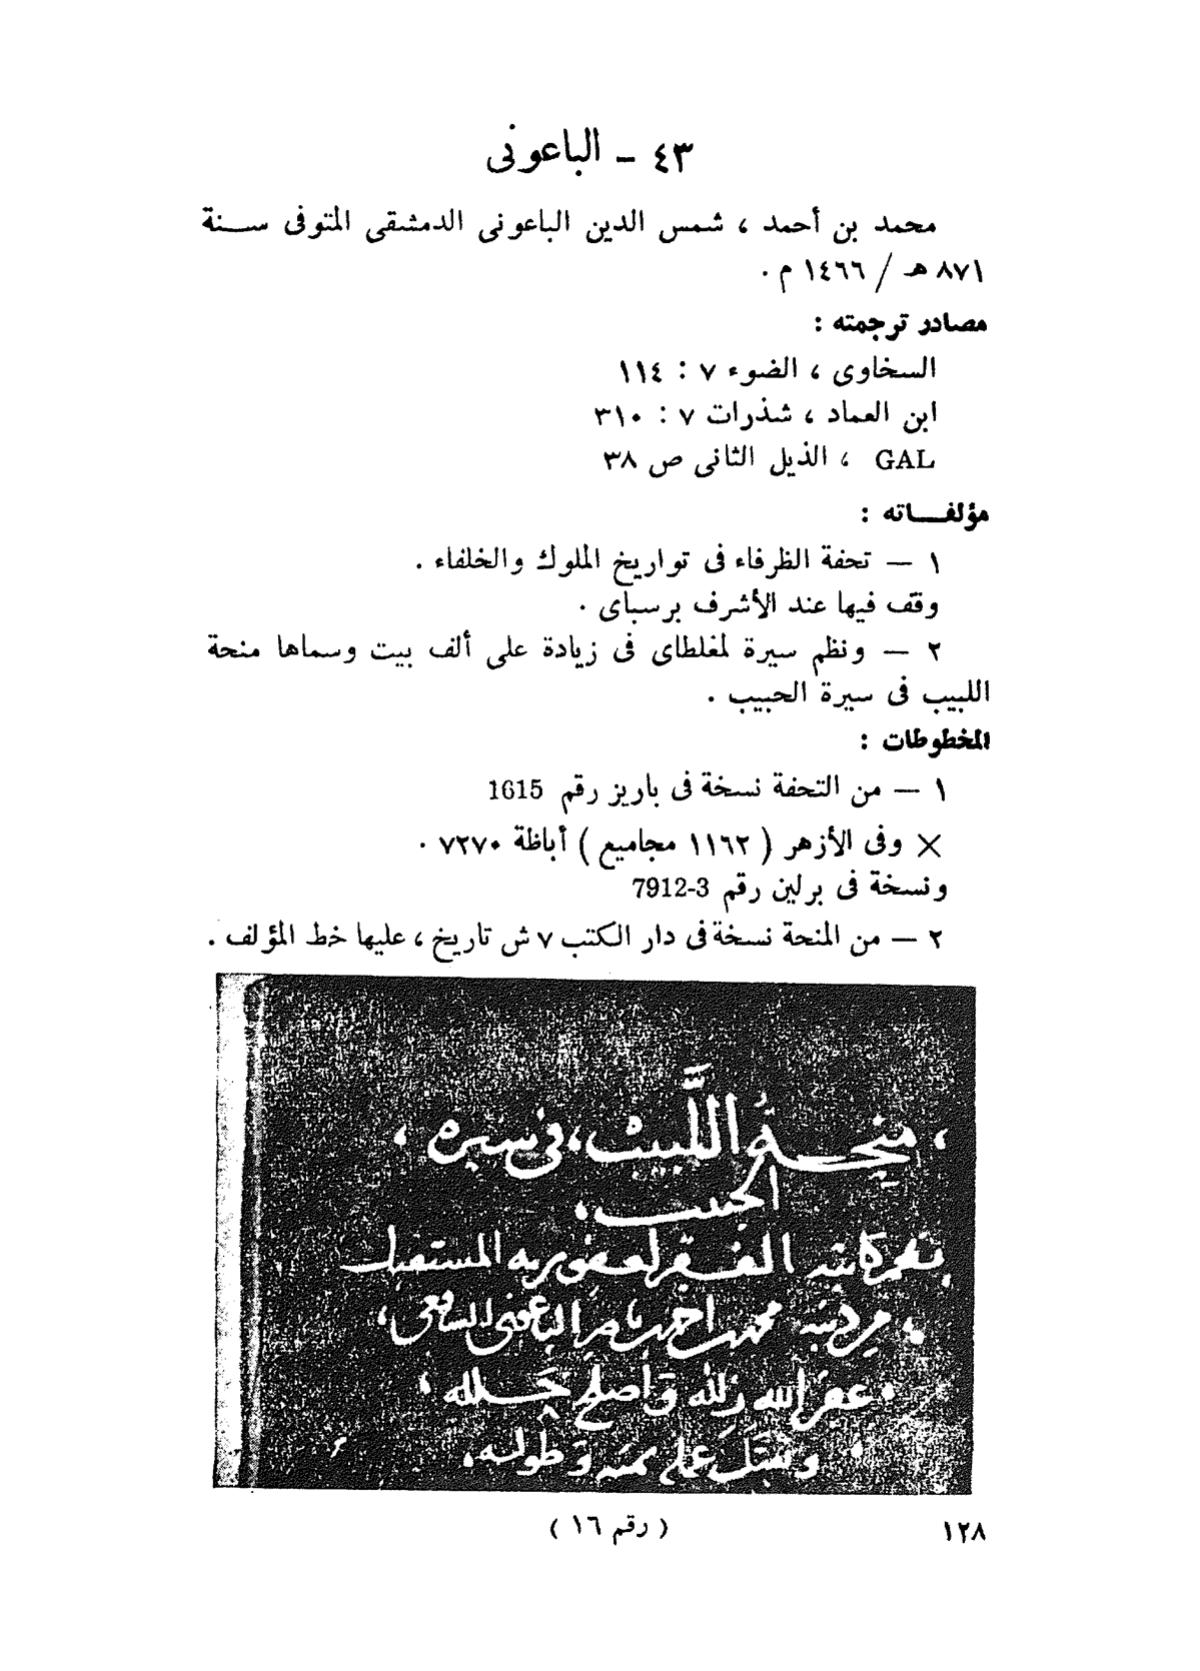 ٤٣ - الباعونى
محمد بن أحمد ، شمس الدين الباعونى الدمشقى المتوفى سنة
٨٧١ هـ / ١٤٦٦ م .
مصادر ترجمته :
السخاوى ، الضوء ٧ : ١١٤
ابن العماد ، شذرات ٧ : ٣١٠
GAL ، الذيل الثانى ص ٣٨
مؤلفاته :
١ — تحفة الظرفاء فى تواريخ الملوك والخلفاء .
وقف فيها عند الأشرف برسباى .
٢ — ونظم سيرة لمغلطاى فى زيادة على ألف بيت وسماها منحة
اللبيب فى سيرة الحبيب .
المخطوطات :
١ — من التحفة نسخة فى باريز رقم 1615
× وفى الأزهر ( ١١٦٢ مجاميع ) أباظة ٧٢٧٠ .
ونسخة فى برلين رقم 7912-3
٢ — من المنحة نسخة فى دار الكتب ٧ ش تاريخ ، عليها خط المؤلف .
، منحة اللَّبيب ، فى سيره ،
الحبيب ،
الفقير لعفو ربه
محمد احمد الباعونى الشافعى ،
، غفر الله زلله وأصلح خلله ،
( رقم ١٦ )
١٢٨